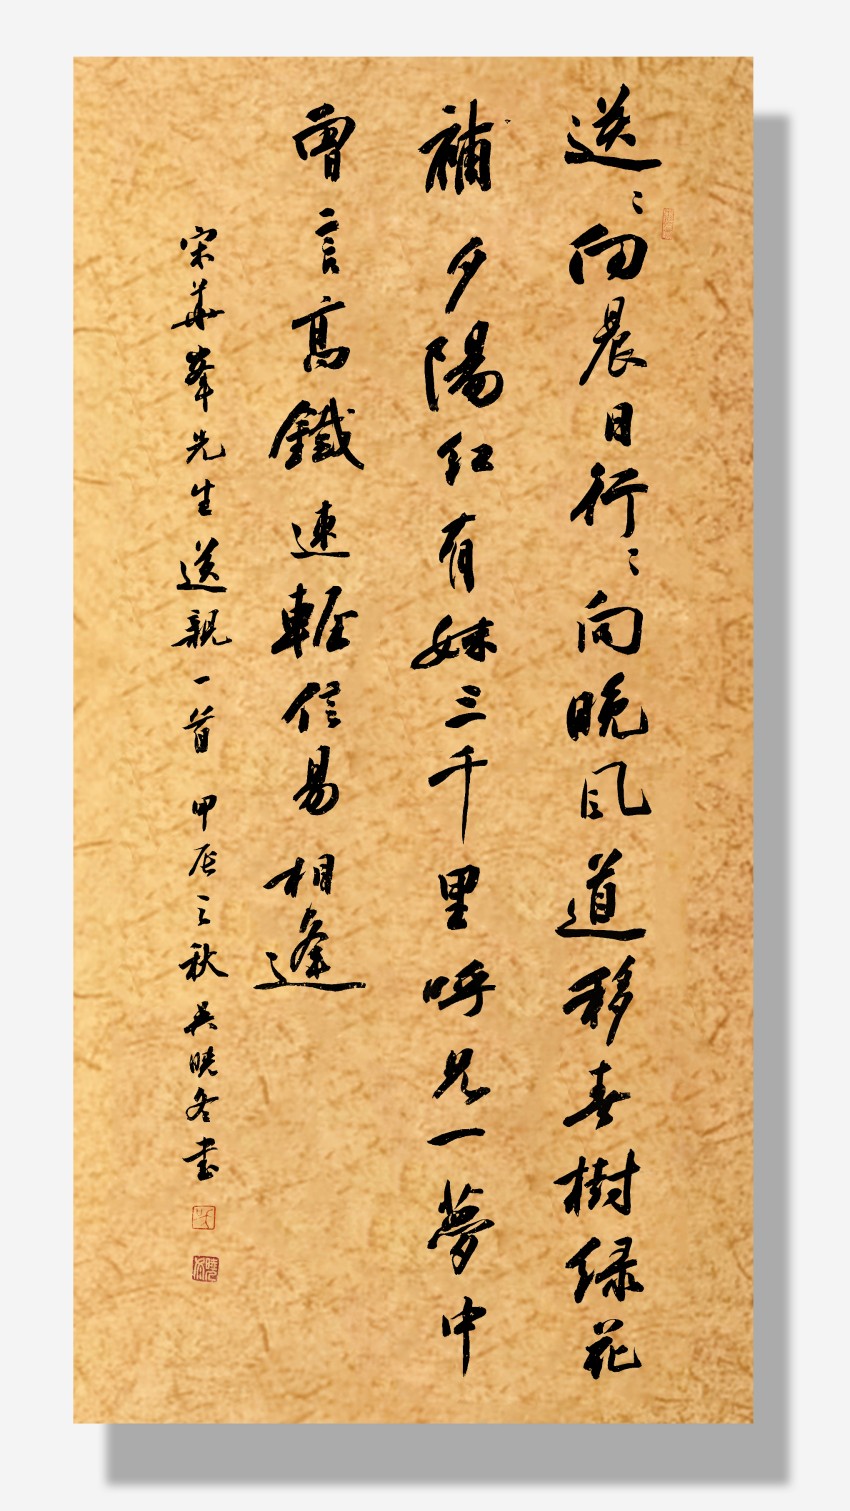 送〻向晨日行〻向晚风道移春樹绿花
補夕陽红有妹三千里呼兄一夢中
曾言高鐵速輕信易相逢
宋華峯先生送親一首甲辰之秋吴曉冬书